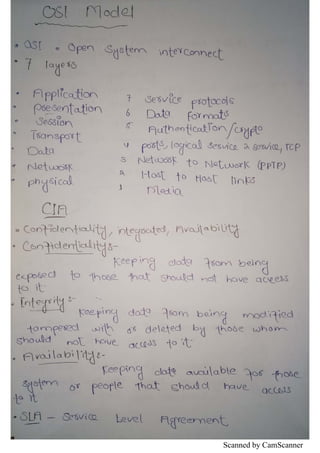 OSI Model
• OSI = Open System interconnect
• 7 layers
• Application 7 Service protocols
• Presentation 6 Data formats
• Session 5 Authentication/crypto
• Transport 4 ports, logical service 2 service, TCP
• Data
• Network 3 Network to Network (PPTP)
• physical 2 Host to Host links
1 Media
CIA
• Confidentiality, integrated, Availability
• Confidentiality:-
Keeping data from being
exposed to those that should not have access
to it
• Integrity:-
Keeping data from being modified
tampered with or deleted by those whom
should not have access to it
• Availability:-
Keeping data available for those
system or people that should have access
to it
• SLA - Service Level Agreement
Scanned by CamScanner